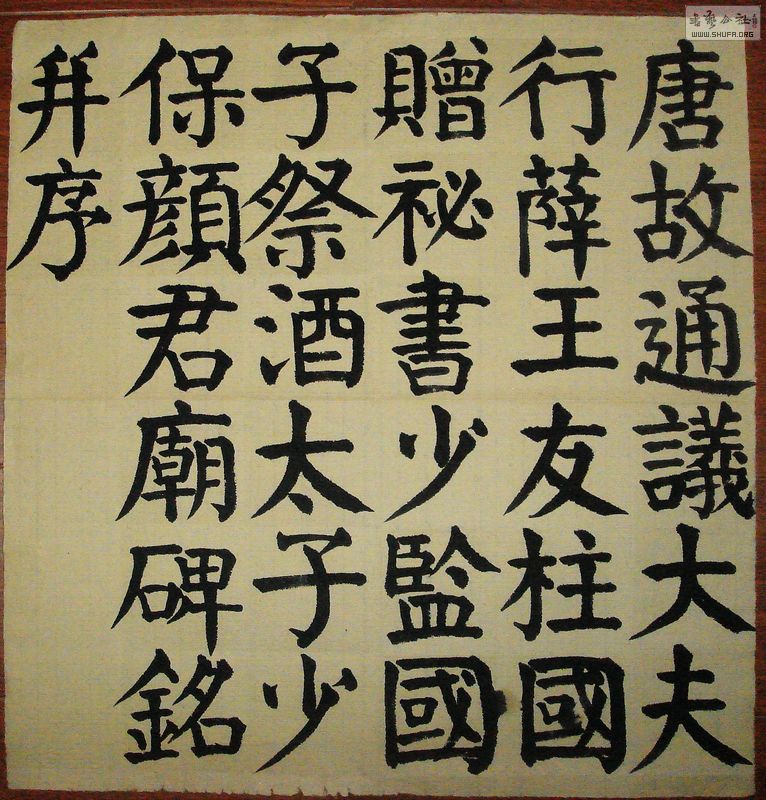 唐故通議大夫
行薛王友柱國
贈祕書少監國
子祭酒太子少
保顏君廟碑銘
并序
WWW.SHUFA.ORG